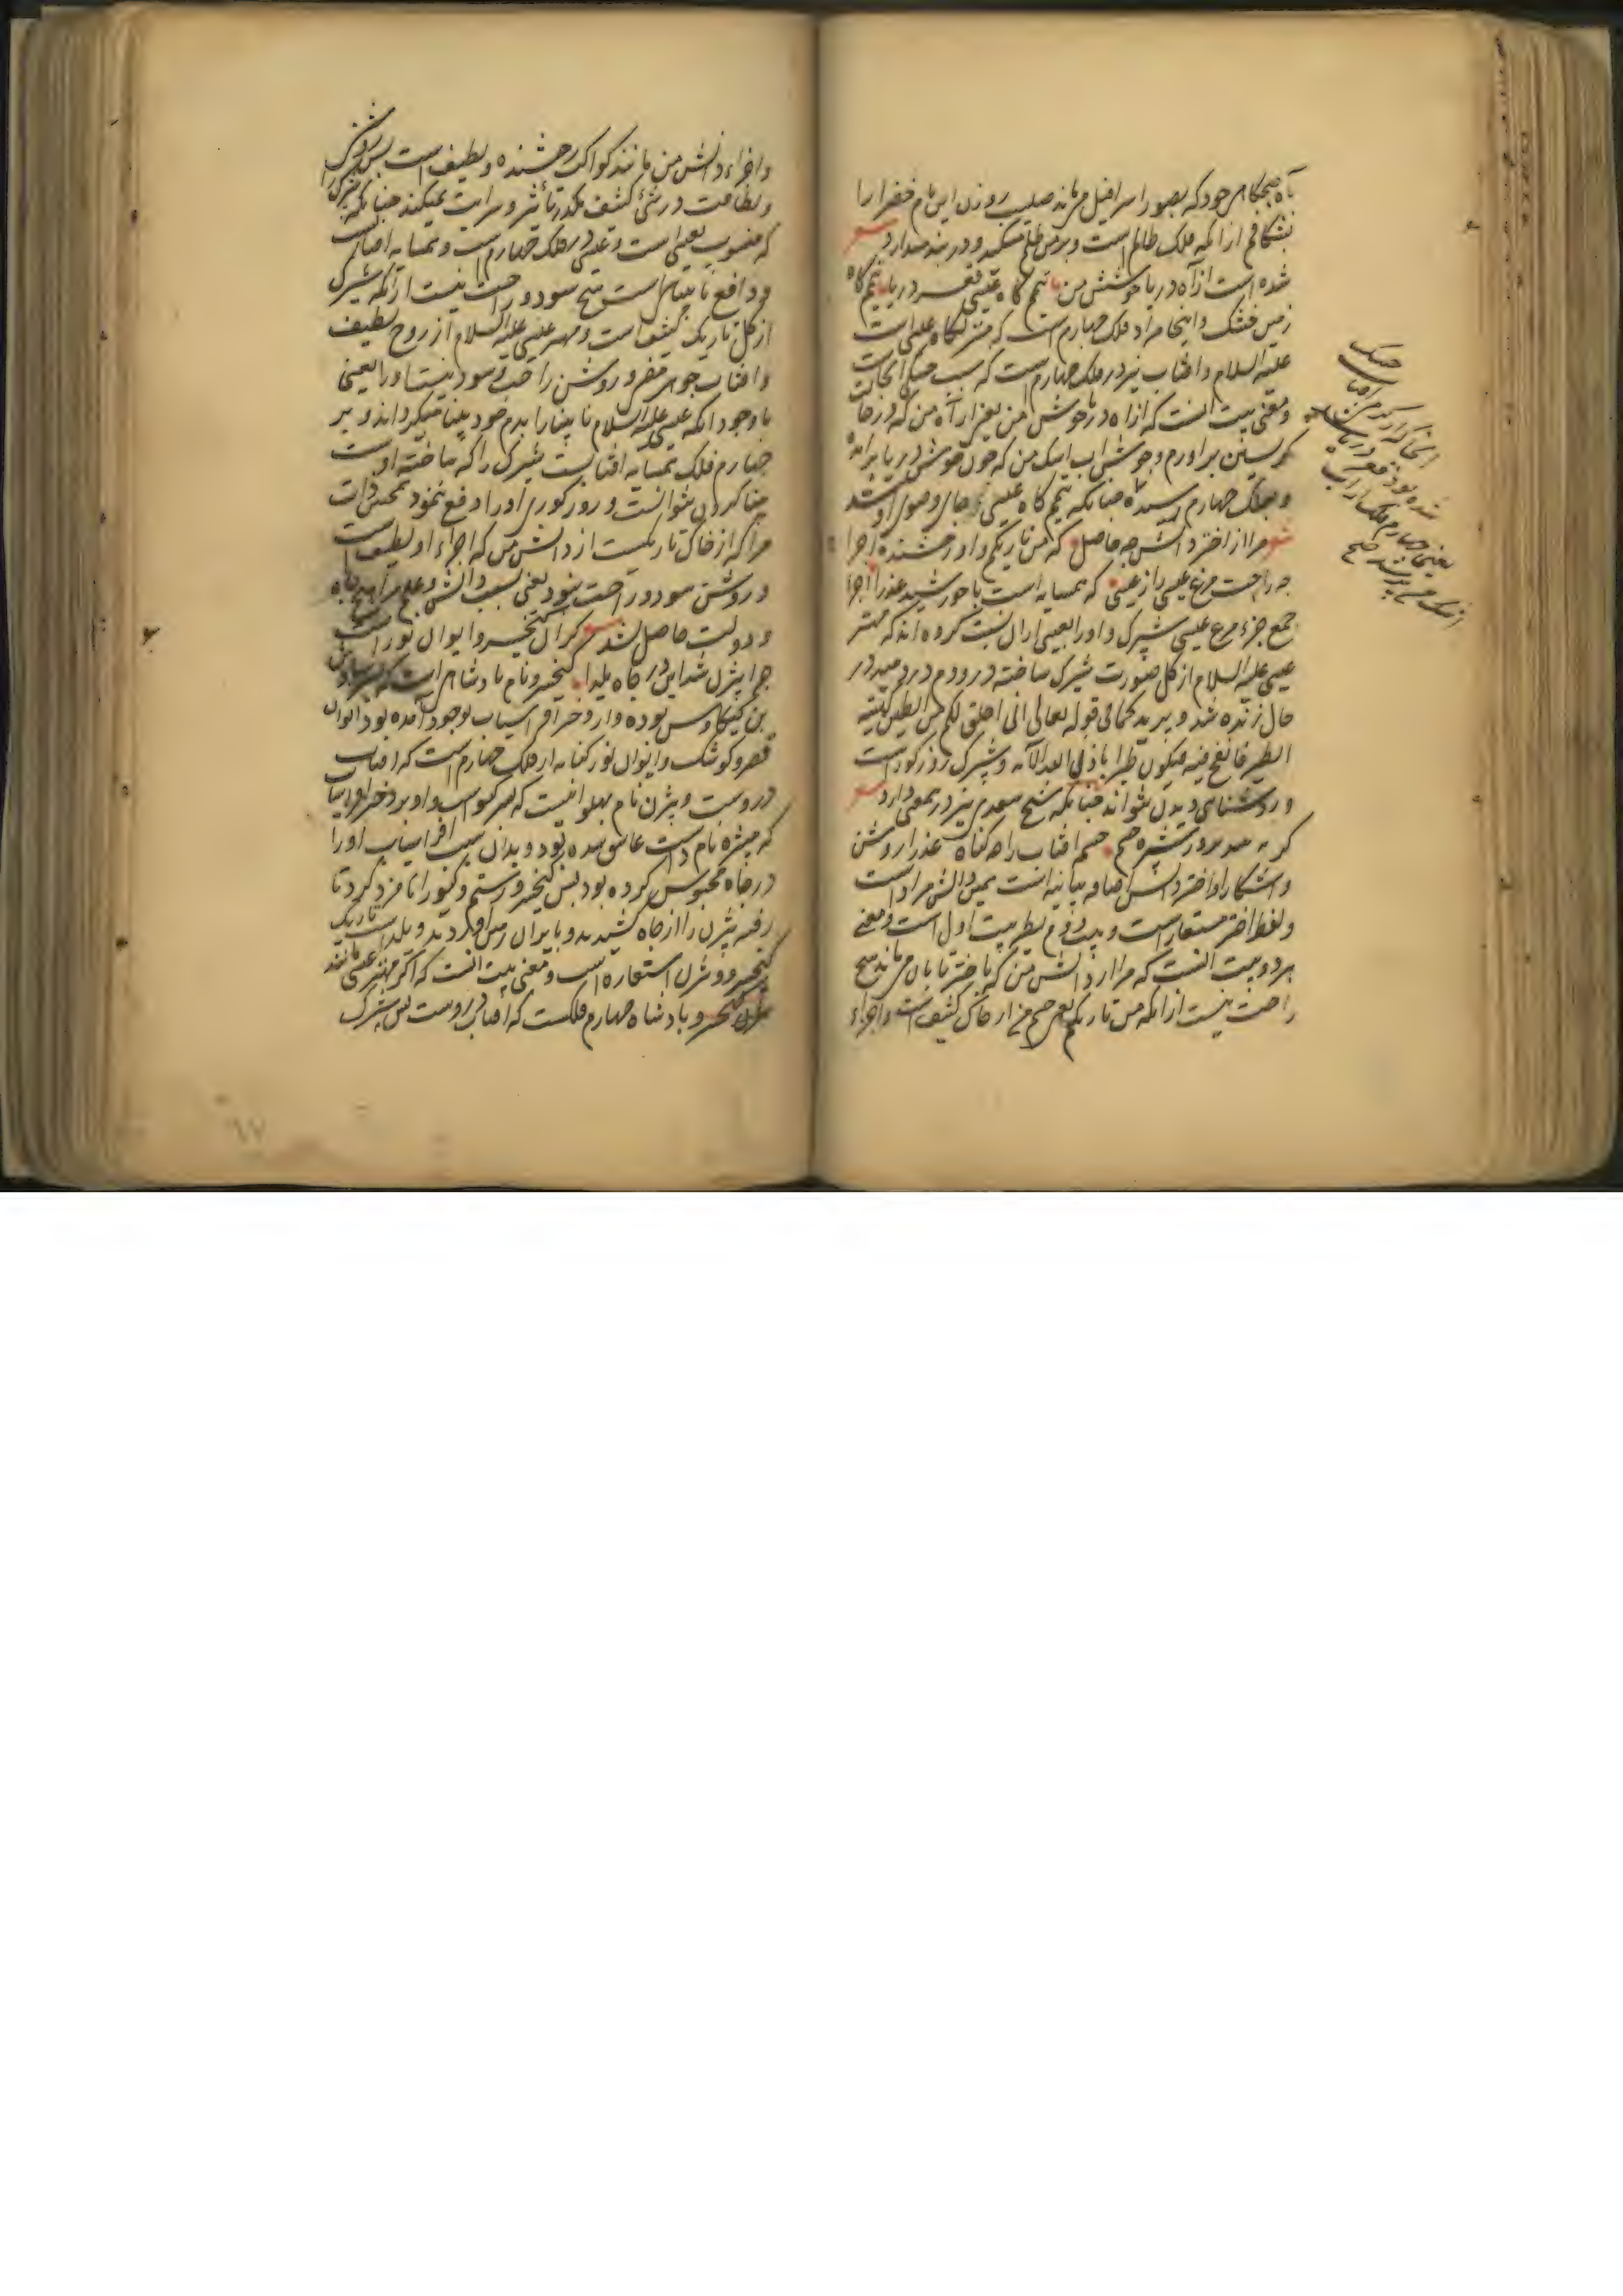 آه صبحگاهی خود که بصور اسرافیل می ماند صلیب روزن این بام خضرا را
بشکافم از آنکه فلک ظالم است و بر من ظلم میکند و در بند میدارد
شده است از آه دریا جوشش من تیمم گاه عیسی قعر دریا تیمم گاه
زمین خشک و اینجا مراد فلک چهارم است که منزلگاه عیسی است
علیه السلام و افتاب نیز در فلک چهارم است که سبب خشکی انجاست
و معنی بیت انست که از آه دریا جوش من یعنی از آه من که در حالت
گریستن براورم و جوشش اب اشک من که چون جوشش دریا براید
و بفلک چهارم رسیده چنانکه تیمم گاه عیسی و جای وضوی او شد
شعر مرا از اختر دانش چه حاصل که من تاریکم و او رخشنده اجزا
چه راحت مرغ عیسی را ز عیسی که همسایه است با خورشید عذرا اجزا
جمع جزء مرغ عیسی شپرک و او را بعیسی ازان نسبت کرده اند که مهتر
عیسی علیه السلام از گل صورت شپرک ساخته در و دم در دمید در
حال زنده شد و بپرید کما فی قوله تعالی انی اخلق لکم من الطین کهیئة
الطیر فانفخ فیه فیکون طیرا باذن الله الآیه و شپرک روز کور است
و روشنایی دیدن نتواند چنانکه شیخ سعدی نیز در معنی دارد
گر نه بیند بروز شپره چشم چشمه افتاب را چه گناه عذرا روشن
و اشکارا و اختر دانش اضافه بیانیه است یعنی دانش مراد است
و لفظ اختر مستعار است و بیت دوم نظیر بیت اول است و معنی
هر دو بیت انست که مرا از دانش من که باختر تابان می ماند هیچ
راحت نیست از انکه من تاریکم یعنی جسم من از خاک کثیف است و اجزاء
و اجزاء دانش من مانند کواکب رخشنده و لطیف است پس روشنی
و لطافت در شیء کثیف مکدر تأثیر و سرایت نمیکند چنانکه شپرک را
که منسوب بعیسی است و عیسی در فلک چهارم است و همسایه افتاب
و دافع نابینایی است هیچ سود و راحت نیست از آنکه شپرک
از گل تاریک کثیف است و مهتر عیسی علیه السلام از روح لطیف
و افتاب جوهر منور و روشن راحت و سود نیست او را یعنی
با وجود انکه عیسی علیه السلام نابینا را بدم خود بینا میگرداند و بر
چهارم فلک همسایه افتاب است شپرک را که ساخته اوست
بینا کردن نتوانست و روز کوری او را دفع ننمود همچنان
مرا که از خاک تاریکیست از دانش من که اجزاء او لطیف است
و روشن سود و راحت نبود یعنی بسبب دانش و علم مرا هیچ جاه
و دولت حاصل نشد شعر گر آن کیخسرو ایوان نور است
چرا بیژن شد این در چاه یلدا کیخسرو نام پادشاهی است که پسر سیاوش
بن کیکاوس بوده و از دختر افراسیاب بوجود آمده بود ایوان
قصر و کوشک و ایوان نور کنایه از فلک چهارم است که افتاب
در وست و بیژن نام پهلوانیست که پسر گیو است و او بر دختر افراسیاب
که منیژه نام داشت عاشق شده بود و بدان سبب افراسیاب او را
در چاه محبوس کرده بود پس کیخسرو رستم و گیو را نامزد کرد تا
رفته بیژن را از چاه کشیدند و بایران زمین اوردند و یلدا شب تاریک
کیخسرو و بیژن استعاره است و معنی بیت انست که اگر مهتر عیسی مانند
کیخسرو پادشاه چهارم فلکست که افتاب در وست پس شپرک